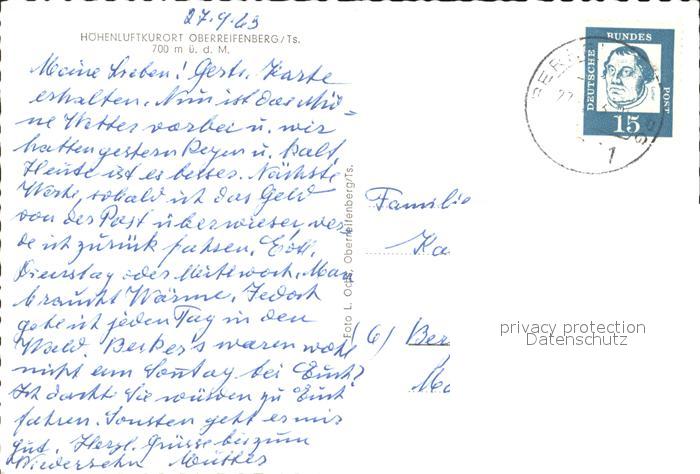 27.9.63
HÖHENLUFTKURORT OBERREIFENBERG/Ts.
700 m ü. d. M.
Meine Lieben! Gestr. Karte
erhalten. Nun ist das schö-
ne Wetter vorbei u. wir
hatten gestern Regen u. kalt,
Heute ist es besser. Nächste
Woche, sobald ich das Geld
von der Post überwiesen, wer
de ich zurück fahren. Evtl.
Dienstag oder Mittwoch. Man
braucht Wärme. Jedoch
gehe ich jeden Tag in den
Wald. Beckers waren wohl
nicht am Sonntag bei Euch?
Ich dachte Sie würden zu Euch
fahren. Sonsten geht es mir
gut. Herzl. Grüsse bis zum
Wiedersehn Mutter
Foto L. Ochs, Oberreifenberg/Ts.
DEUTSCHE BUNDES POST
15
1
Familie
Ka
(6) Ber
privacy protection
Datenschutz